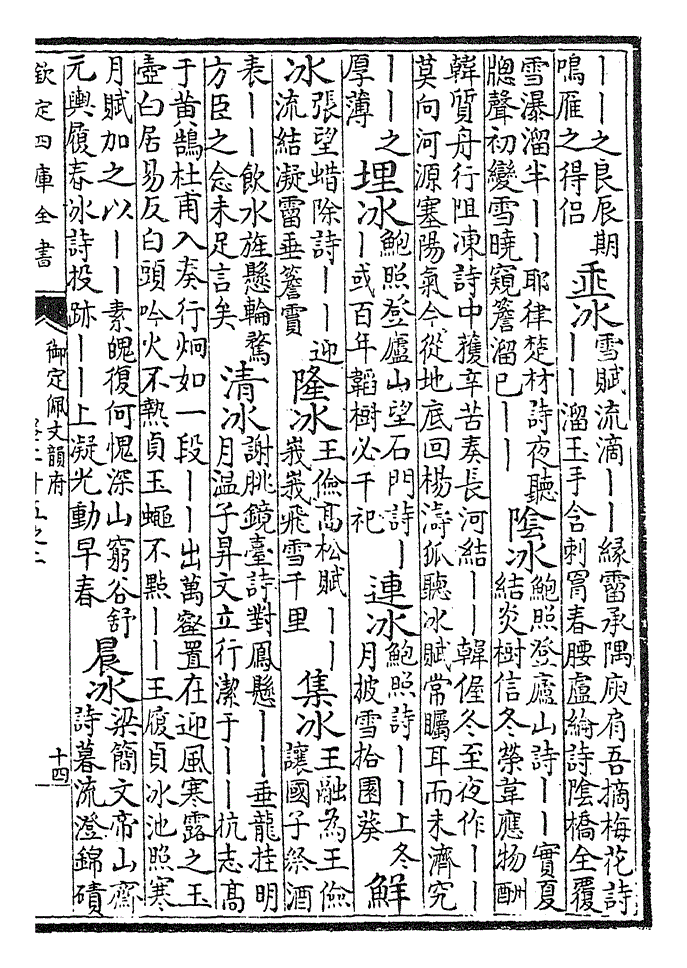 丨丨之良辰期
鳴雁之得侶
垂冰
雪賦流滴丨丨緣霤承隅庾肩吾摘梅花詩
丨丨溜玉手含刺罥春腰盧綸詩陰橋全覆
雪瀑溜半丨丨耶律楚材詩夜聽
牕聲初變雪曉窺簷溜已丨丨
陰冰
鮑照登廬山詩丨丨實夏
結炎樹信冬榮韋應物酬
韓質舟行阻凍詩中獲辛苦奏長河結丨丨韓偓冬至夜作丨丨
莫向河源塞陽氣今從地底回楊濤狐聽冰賦常矚耳而未濟究
丨丨之
厚薄
埋冰
鮑照登廬山望石門詩丨
丨或百年韜樹必千祀
連冰
鮑照詩丨丨上冬
月披雪拾園葵
鮮
冰
張望蜡除詩丨丨迎
流結凝霤垂簷霣
隆冰
王儉高松賦丨丨
峩峩飛雪千里
集冰
王融為王儉
讓國子祭酒
表丨丨飲水旌懸輪騖
方臣之念未足言矣
清冰
謝朓鏡臺詩對鳳懸丨丨垂龍挂明
月温子昇文立行潔于丨丨抗志高
于黄鵠杜甫入奏行炯如一段丨丨出萬壑置在迎風寒露之玉
壺白居易反白頭吟火不熱貞玉蠅不點丨丨王履貞冰池照寒
月賦加之以丨丨素魄復何愧深山窮谷舒
元輿履春冰詩投跡丨丨上凝光動早春
晨冰
梁簡文帝山齋
詩暮流澄錦磧
欽定四庫全書
御定佩文韻府
卷二十五之二
十四